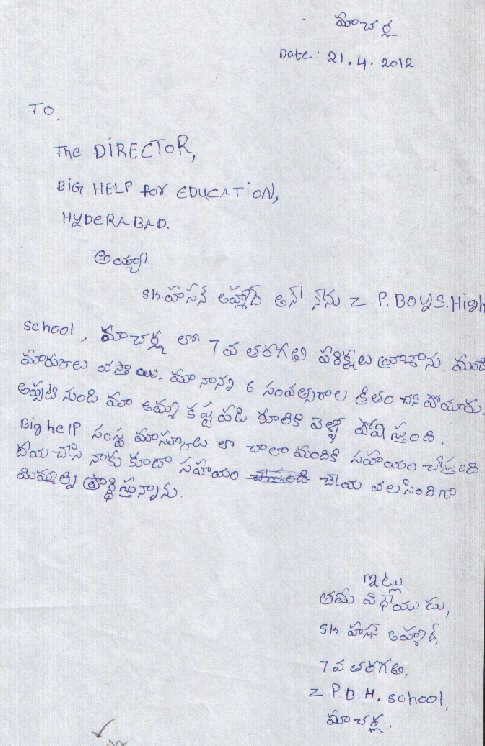 మాచర్ల
Date: 21.4.2012
TO.
The DIRECTOR,
BIG HELP for EDUCATION,
HYDERABAD.
అయ్యా
Sk హసన్ అహ్మద్ అనే నేను Z P. BOYS. High
school, మాచర్ల లో 7వ తరగతి పరీక్షలు వ్రాశాను. మంచి
మార్కులు వస్తాయి. మా నాన్న 6 సంవత్సరాల క్రితం చని పోయారు.
అప్పటి నుండి మా అమ్మ కష్ట పడి కూలికి వెళ్ళి పోషిస్తుంది.
Big help సంస్థ మా స్కూలు లో చాలా మందికి సహాయం చేస్తుంది
దయ చేసి నాకు కుడా సహాయం చేయ వలసిందిగా
మిమ్మల్ని ప్రార్థిస్తున్నాను.
ఇట్లు
తమ విధేయుడు,
Sk హసన్ అహ్మద్.
7వ తరగతి,
Z P B H. School,
మాచర్ల.